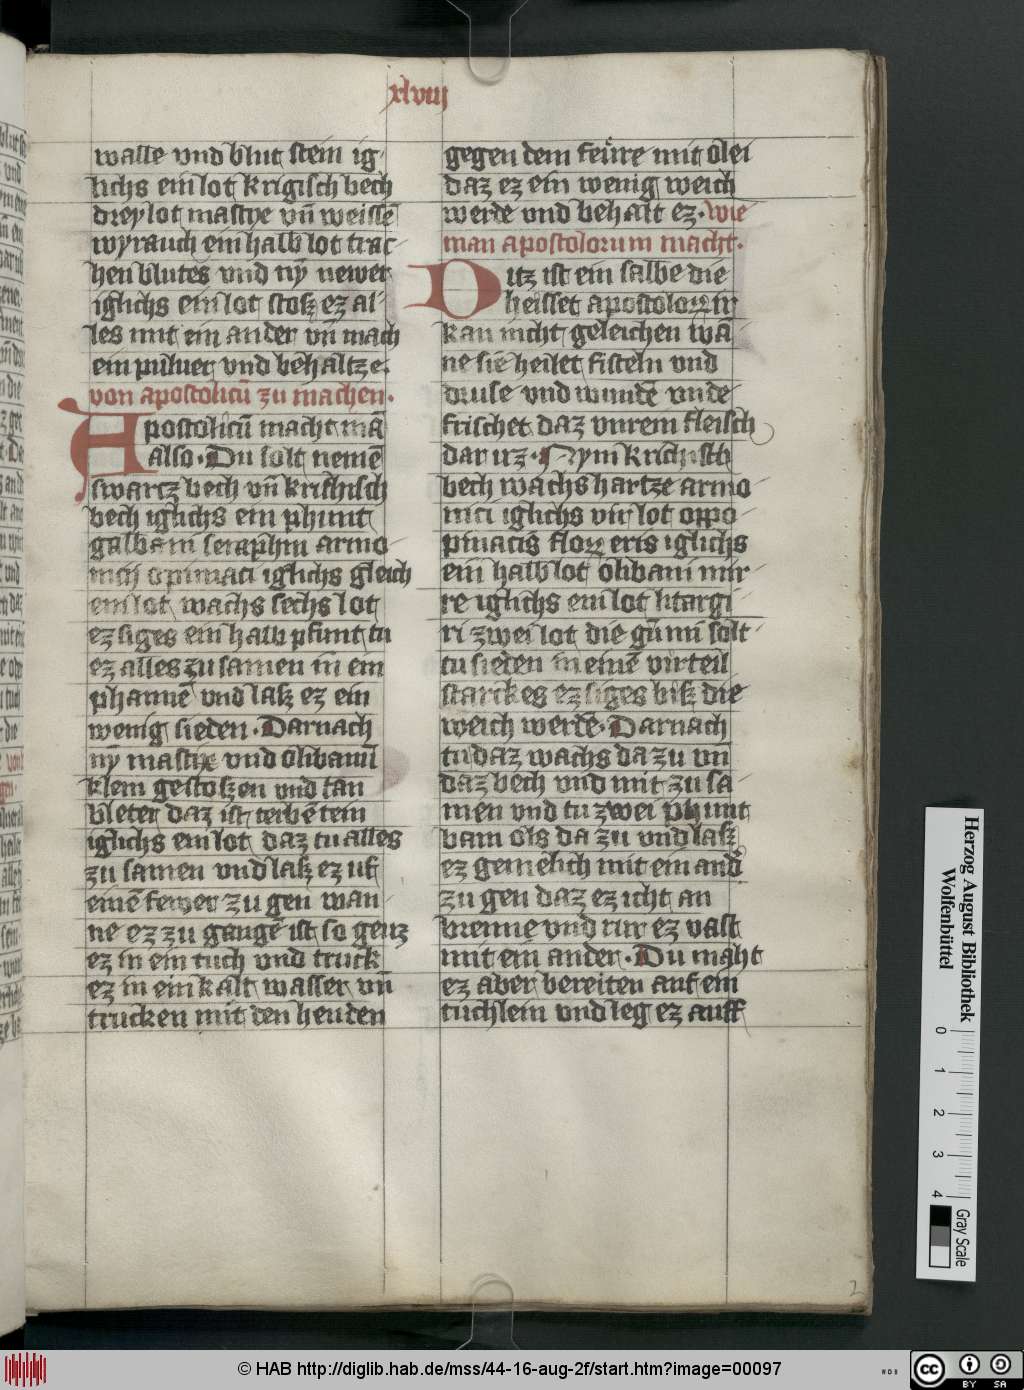 xlviij
walle vnd blut stein ig-
lichs ein lot krigisch bech
drey lot mastye vn̄ weissē
wyrauch ein halb lot trac-
hen blutes vnd nȳ newer
iglichs ein lot stosz ez al-
les mit ein ander vn̄ mach
ein puluer vnd behaltz ez
von apostolicū zu machen.
Apostolicū macht mā
also. Du solt nemē
swartz bech vn̄ krichisch
bech iglichs ein phunt
galbani seraphin armo-
nici opinnaci iglichs gleich
ein lot wachs sechs lot
eziges ein halb pfunt tu
ez alles zu samen in ein
phannē vnd lasz ez ein
wenig sieden. Darnach
nȳ mastix vnd olibanū
klein gestoszen vnd tan
bleter daz ist terbētein
iglichs ein lot daz tu alles
zu samen vnd lasz ez uf
einē fewer zu gen wan-
ne ez zu gangē ist so geuz
ez in ein tuch vnd truck
ez in ein kalt wasser vn̄
trucken mit den henden
gegen dem feure mit olei
daz ez ein wenig weich
werde vnd behalt ez. wie
man apostolorum macht.
Ditz ist ein salbe die
heisset apostoloꝝ ir
kan nicht geleichen wā-
ne sie heilet fisteln vnd
druse vnd wundē vnde
frischet daz vnrein fleisch
dar uz. Nym krichisch
bech wachs hartze armo-
nici iglichs vir lot oppo-
pinacis floꝝ eris iglichs
ein halb lot olibani mir-
re iglichs ein lot litargi-
ri zwei lot die gūmi solt
tu sieden in einē virteil
starckes eziges bisz die
weich werdē. Darnach
tu daz wachs da zu vn̄
daz bech vnd mit zu sa-
men vnd tu zwei phunt
bam ols da zu vnd lasz
ez gemelich mit ein and'
zu gen daz ez icht an
brenne vnd rur ez vast
mit ein ander. Du maht
ez aber bereiten auf ein
tuchlein vnd leg ez auff
2
Herzog August Bibliothek
Wolfenbüttel
0 1 2 3 4
Gray Scale
© HAB http://diglib.hab.de/mss/44-16-aug-2f/start.htm?image=00097
cc BY SA